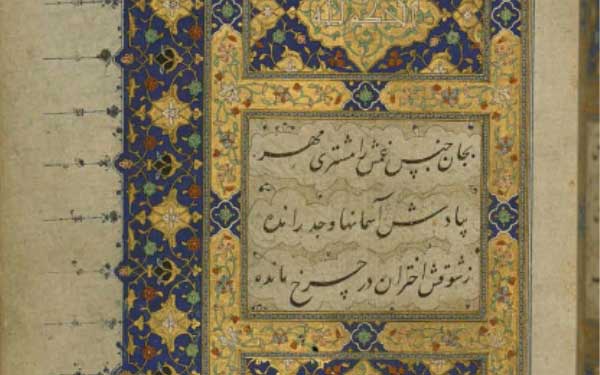 بجان جنس غمش را مشتری مهر
بیادش آسمانها وجد رانده
زشوقش اختران در چرخ مانده